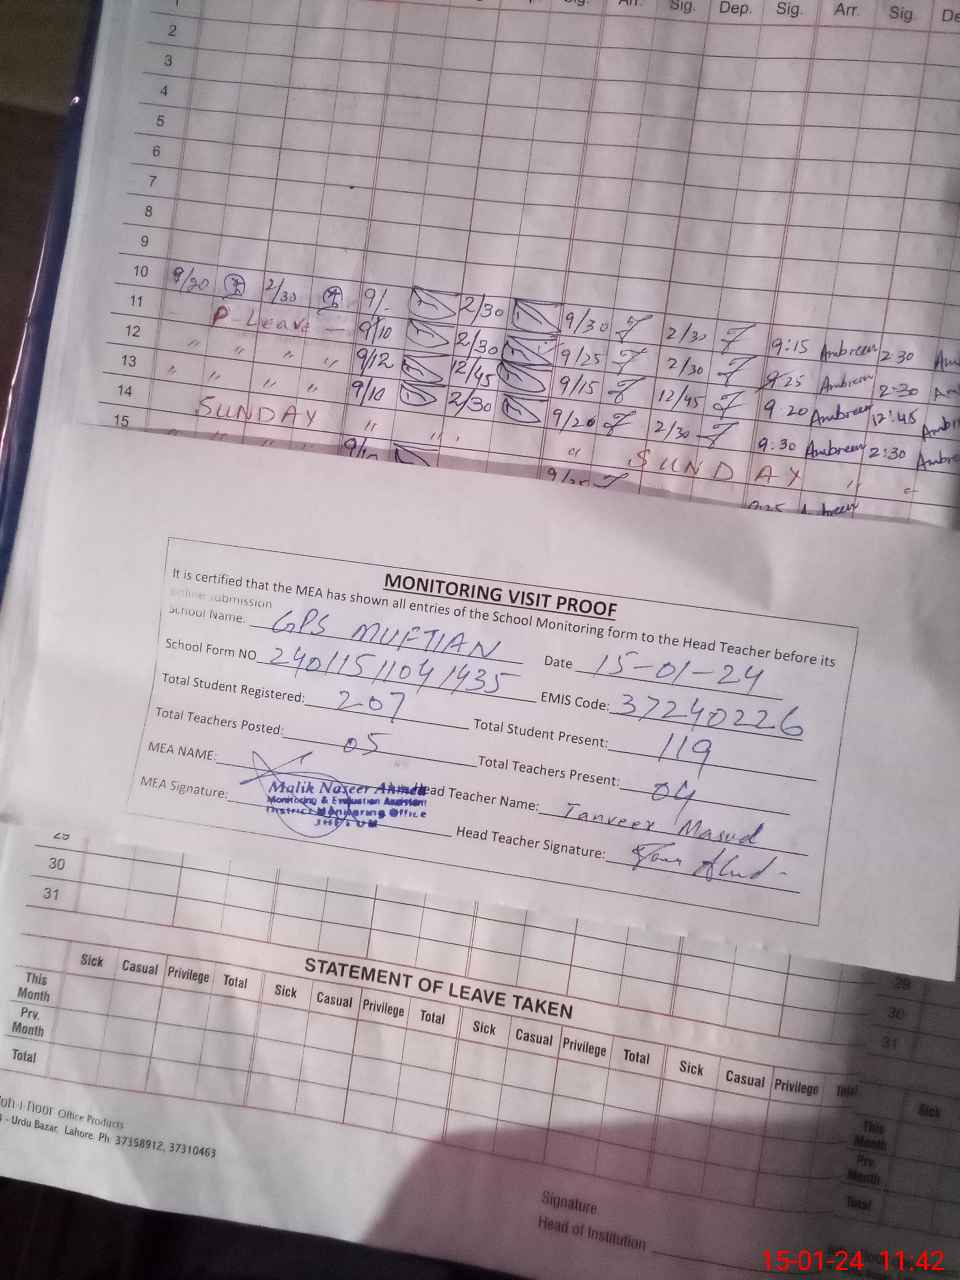 Sig. Arr. Sig. Dep. Sig. Arr. Sig.
2
3
4
5
6
7
8
9
10 9/20 2/30 9/- 2/30 9/30 2/30 9:15 Ambreen 2:30
11 P-Leave 9/10 2/30 9/25 2/30 9:25 Ambreen 2:30
12 " " " " 9/12 12/45 9/15 12/45 9:20 Ambreen 12:45
13 " " " " 9/10 2/30 9/20 2/30 9:30 Ambreen 2:30
14 SUNDAY " " " SUNDAY "
15 " " " "
MONITORING VISIT PROOF
It is certified that the MEA has shown all entries of the School Monitoring form to the Head Teacher before its
online submission
School Name. GPS MUFTIAN Date 15-01-24
School Form NO 24011511041435 EMIS Code: 37240226
Total Student Registered: 207 Total Student Present: 119
Total Teachers Posted: 05 Total Teachers Present: 04
MEA NAME: Head Teacher Name: Tanveer Masud
Malik Naseer Ahmed
Monitoring & Evaluation Assistant
District Monitoring Office
JHELUM
MEA Signature: Head Teacher Signature:
29
30
31
29
30
31
STATEMENT OF LEAVE TAKEN
Sick Casual Privilege Total Sick Casual Privilege Total Sick Casual Privilege Total Sick Casual Privilege Total
This Month
Prv. Month
Total
Sick
This Month
Prv. Month
Total
Office Products
- Urdu Bazar, Lahore. Ph: 37358912, 37310463
Signature
Head of Institution
15-01-24 11:42